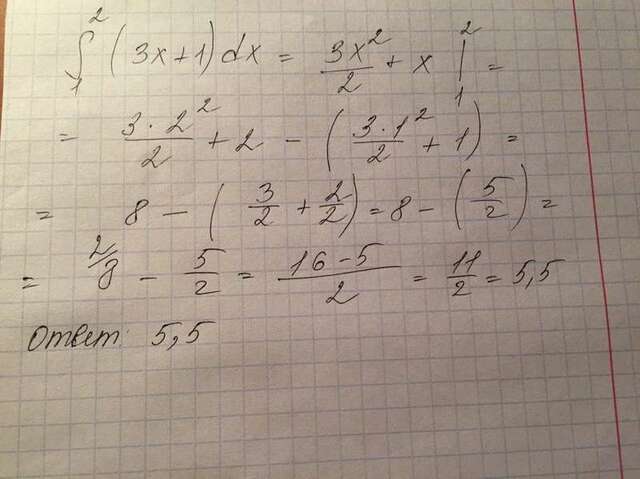 ∫₁² (3x+1)dx = 3x²/2 + x |₁² =
= 3·2²/2 + 2 − (3·1²/2 + 1) =
= 8 − (3/2 + 2/2) = 8 − (5/2) =
= ²⁄8 − 5/2 = 16−5/2 = 11/2 = 5,5
Ответ: 5,5